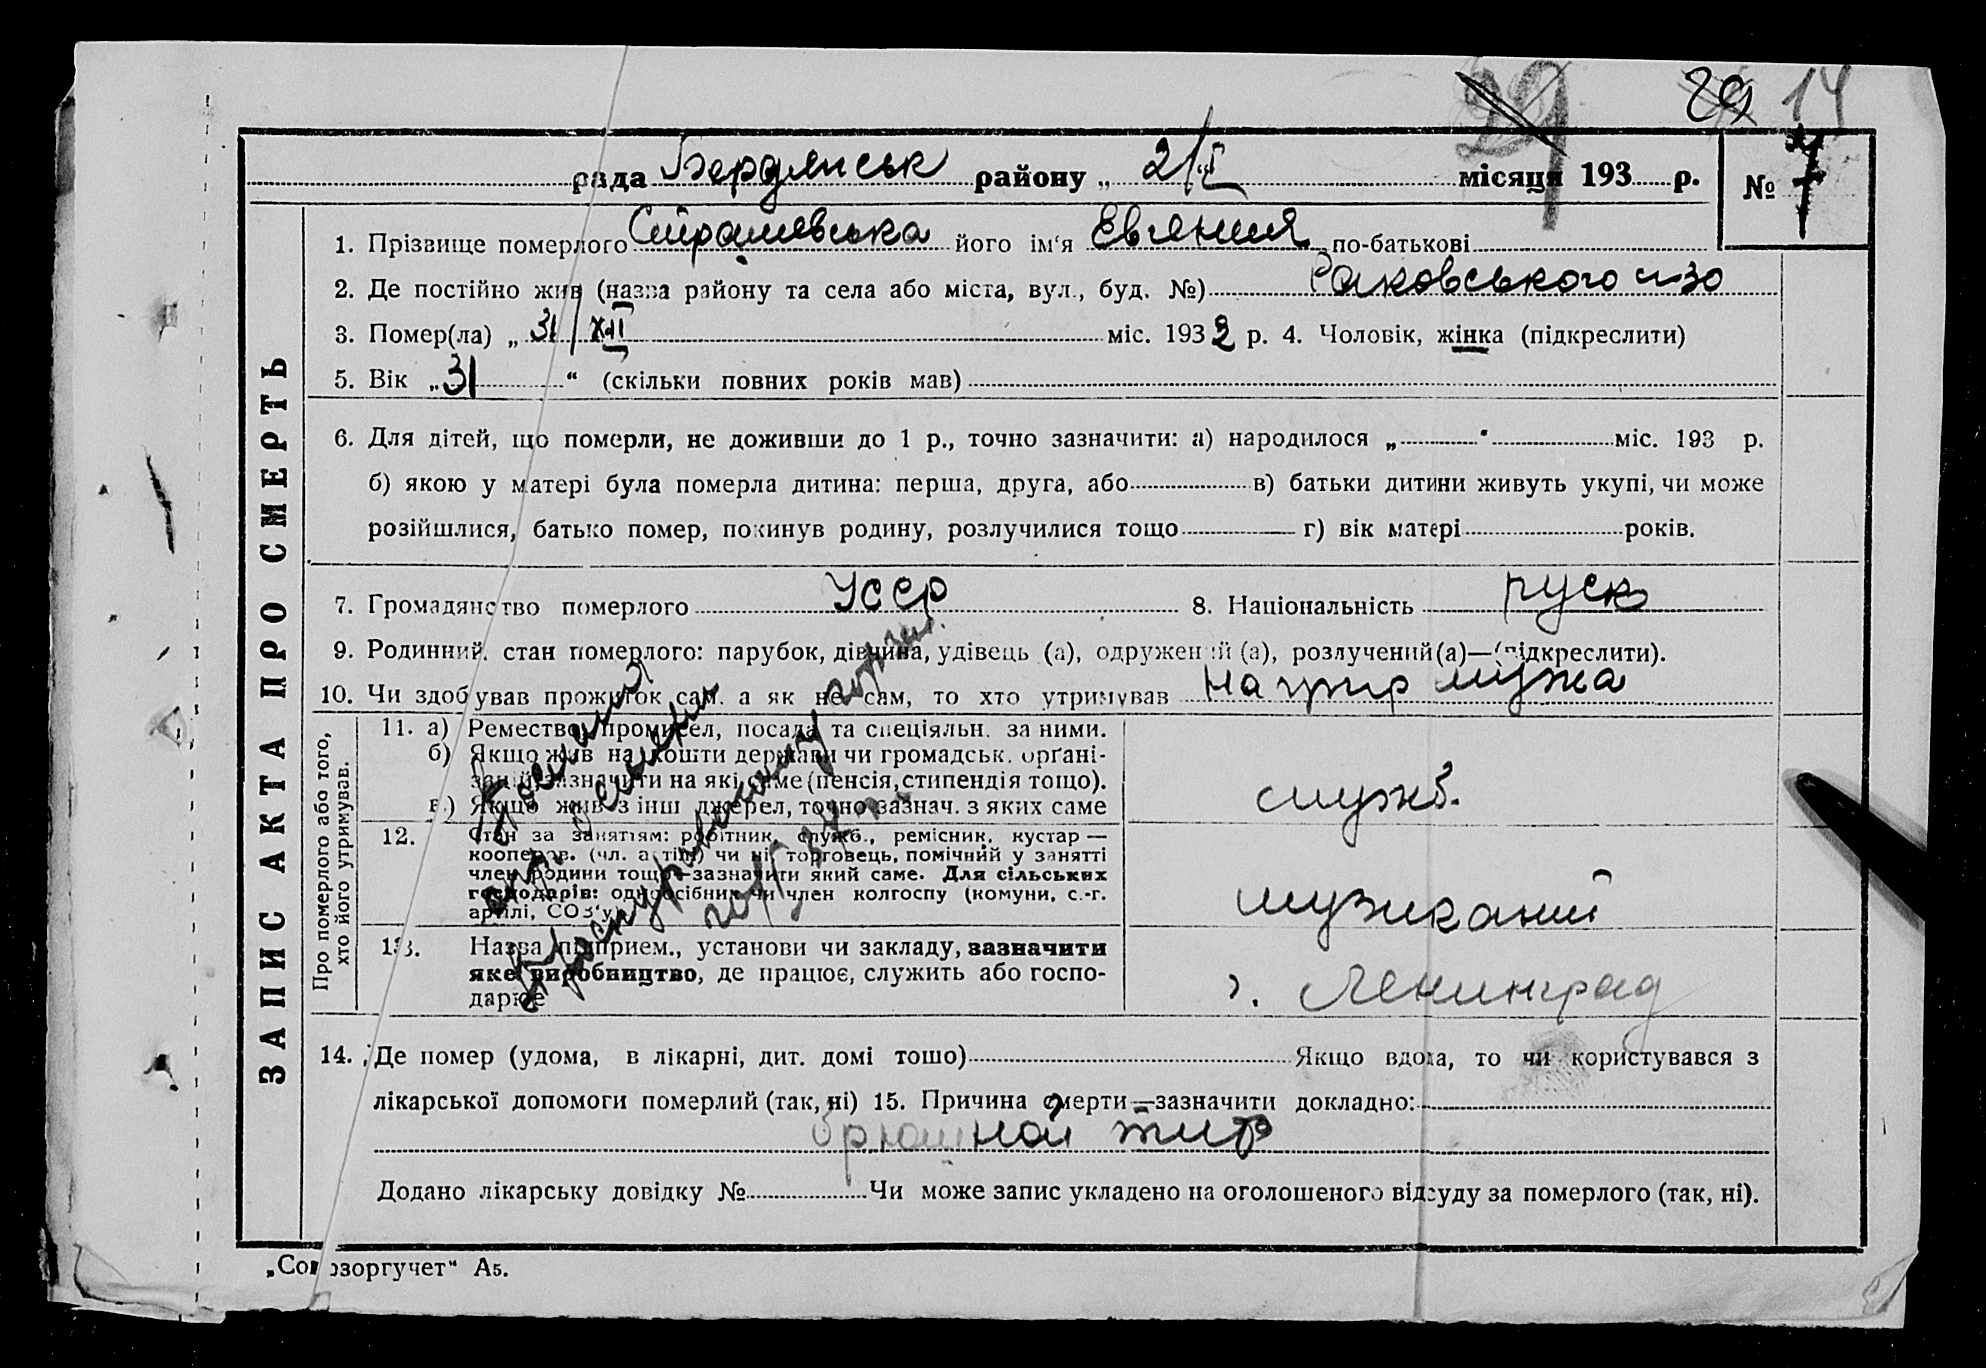 29 29 14
рада Бердянськ району „ 2/I місяця 193 р. № 7
ЗАПИС АКТА ПРО СМЕРТЬ
1. Прізвище померлого Страшевська його ім'я Евгения по-батькові
2. Де постійно жив (назва району та села або міста, вул., буд. №) Раковського
3. Помер(ла) „ 31/XII міс. 1932 р. 4. Чоловік, жінка (підкреслити)
5. Вік „ 31 “ (скільки повних років мав)
6. Для дітей, що померли, не доживши до 1 р., точно зазначити: а) народилося „ “ міс. 193 р.
б) якою у матері була померла дитина: перша, друга, або в) батьки дитини живуть укупі, чи може
розійшлися, батько помер, покинув родину, розлучилися тощо г) вік матері років.
7. Громадянство померлого УССР 8. Національність руск
9. Родинний стан померлого: парубок, дівчина, удівець (а), одружений (а), розлучений(а)—(підкреслити).
10. Чи здобував прожиток сам, а як не сам, то хто утримував на утр мужа
Про померлого або того,
хто його утримував.
11. а) Ремество, промисел, посада та спеціяльн. за ними.
б) Якщо жив на кошти держави чи громадськ. орґані-
зацій, зазначити на які саме (пенсія, стипендія тощо).
в) Якщо жив з інш джерел, точно зазнач. з яких саме
служб.
12. Стан за заняттям: робітник, служб., ремісник, кустар —
кооперов. (чл. артілі) чи ні, торговець, помічний у занятті
член родини тощо—зазначити який саме. Для сільських
господарів: одноосібник чи член колгоспу (комуни, с.-г.
артілі, СОЗ'у)
музикант
13. Назва підприєм., установи чи закладу, зазначити
яке виробництво, де працює, служить або госпо-
дарює
г. Ленинград
14. Де помер (удома, в лікарні, дит. домі тощо) Якщо вдома, то чи користувався з
лікарської допомоги померлий (так, ні) 15. Причина смерти—зазначити докладно:
брюшной тиф
Додано лікарську довідку № Чи може запис укладено на оголошеного відсуду за померлого (так, ні).
„Союзоргучет“ А5.